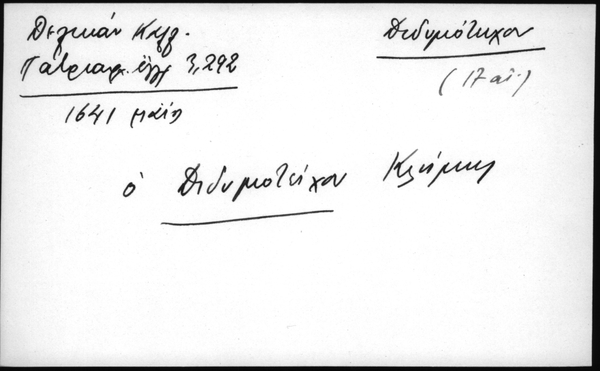 Δελικάν Καλ.
Πατριαρχ. έγγρ. 3,292
1641 μαΐῳ
Διδυμότειχον
(17 αἰ.)
ὁ Διδυμοτείχου Κλήμης